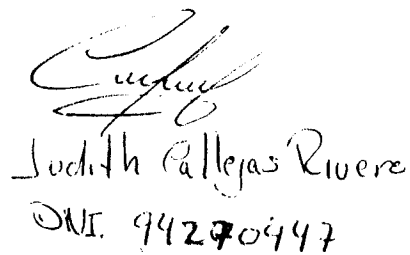 Judith Callejas Rivera
DNI. 94270447